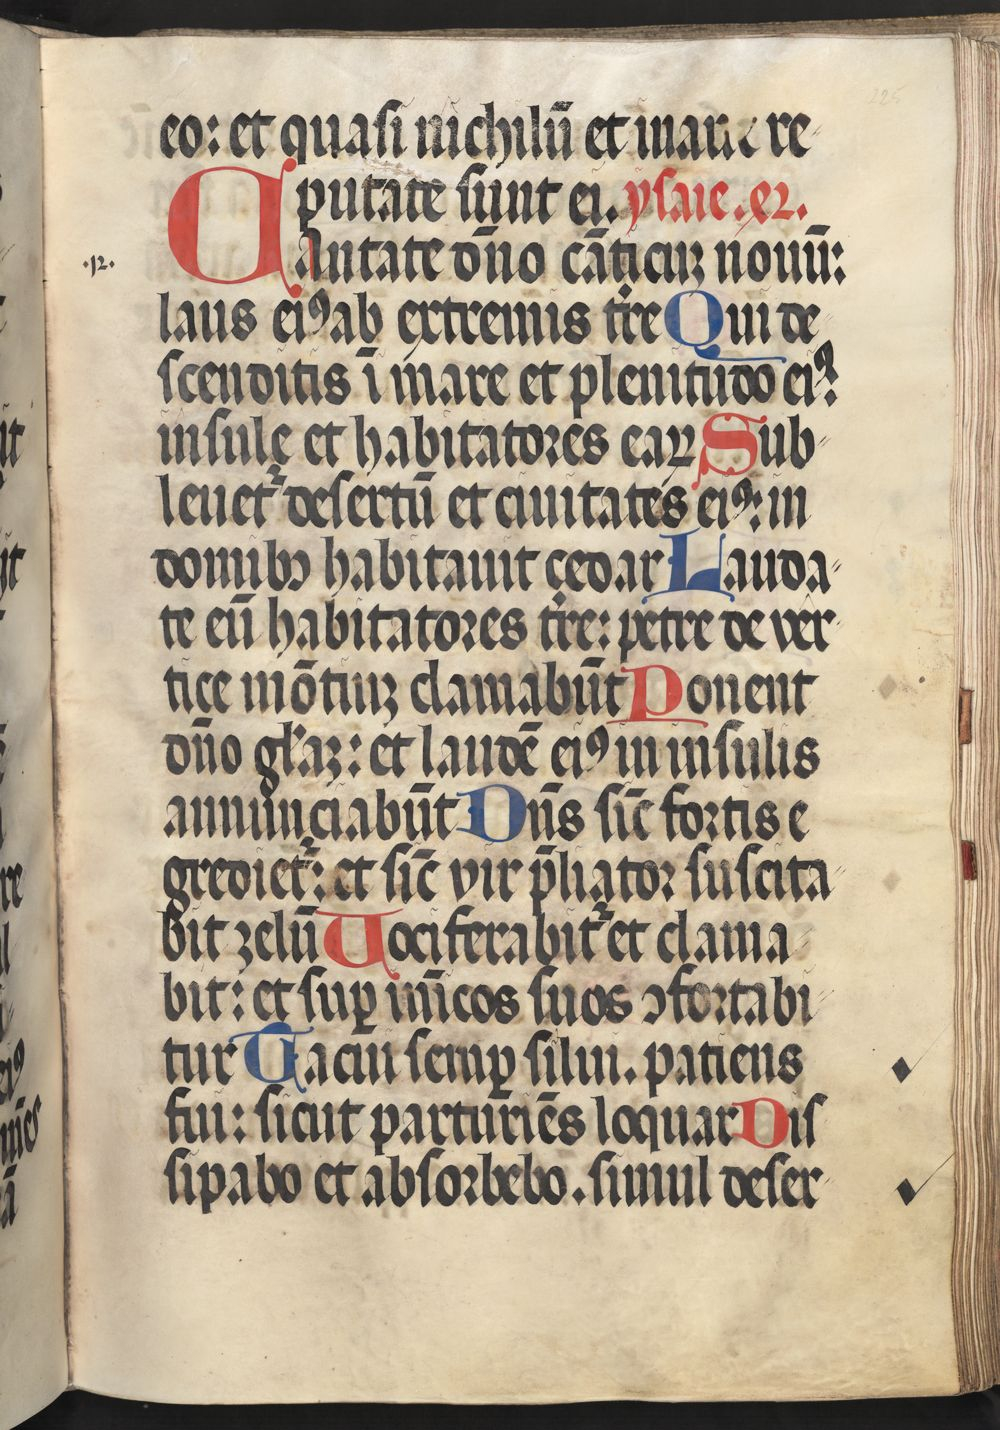 eo: et quasi nichilū et inane re
putate sunt ei. ysaie. xl2.
Cantate dn̄o cāticuꝫ nouū:
·12·
laus eiꝰ ab extremis tr̄re Qui de
scenditis ī mare et plenitudo eiꝰ:
insule et habitatores eaꝝ Sub
leuet᷑ desertū et ciuitates eiꝰ: in
domibꝫ habitauit cedar Lauda
te eū habitatores tr̄re: petre de ver
tice mōtiuꝫ clamabūt Ponent
dn̄o gl̄iaꝫ: et laudē eiꝰ in insulis
annunciabūt Dn̄s sic̄ fortis e
gredіet᷑: et sic̄ vir p̄liator suscita
bit zelū Uociferabit᷑ et clama
bit: et suꝑ inīcos suos ꝯfortabi
tur Tacui semꝑ silui. patiens
fui: sicut parturiēs loquar Dis
sipabo et absorbebo. simul deser
225